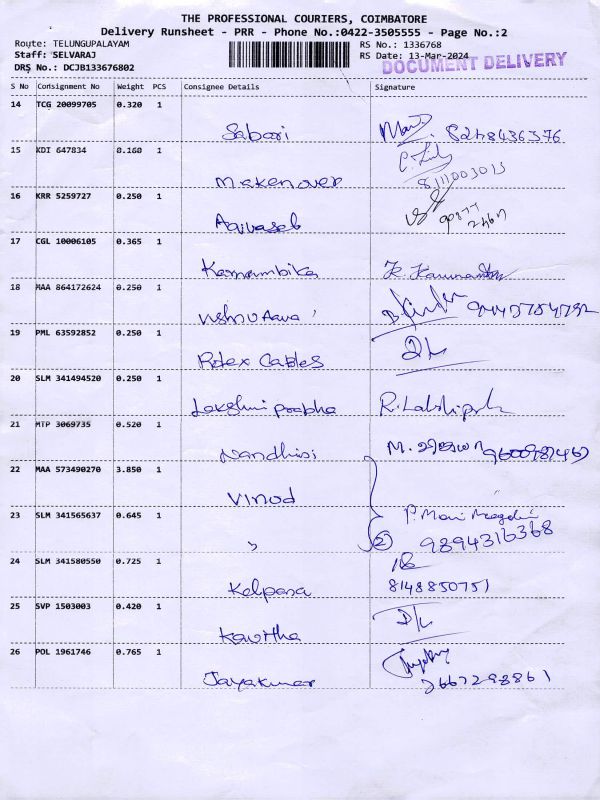 THE PROFESSIONAL COURIERS, COIMBATORE
Delivery Runsheet - PRR - Phone No.:0422-3505555 - Page No.:2
Route: TELUNGUPALAYAM RS No.: 1336768
Staff: SELVARAJ RS Date: 13-Mar-2024
DRS No.: DCJB133676802 DOCUMENT DELIVERY
S No Consignment No Weight PCS Consignee Details Signature
14 TCG 20099705 0.320 1
Sabari 8248436376
15 KDI 647834 0.160 1
Makeover 8111003013
16 KRR 5259727 0.250 1
17 CGL 10006105 0.365 1
Kamambika K. Karunan
18 MAA 864172624 0.250 1
Vishnu Aava
19 PML 63592852 0.250 1
Rotex Cables
20 SLM 341494520 0.250 1
Lakshmi prabha R. Lakshipr
21 MTP 3069735 0.520 1
Nandhisi M.
22 MAA 573490270 3.850 1
Vinod
23 SLM 341565637 0.645 1
" 2 9894316368
24 SLM 341580550 0.725 1
Kalpana 8148850751
25 SVP 1503003 0.420 1
Kavitha
26 POL 1961746 0.765 1
Jayakumar 2667298861